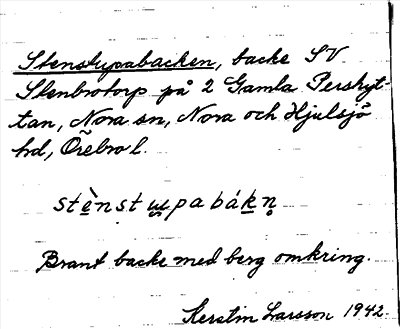 Stenstupabacken, backe SV
Stenbrotorp på 2 Gamla Pershyt-
tan, Nora sn, Nora och Hjulsjö
hd, Örebro l.
stènstu̠pabák̠n̥
Brant backe med berg omkring.
Kerstin Larsson 1942.